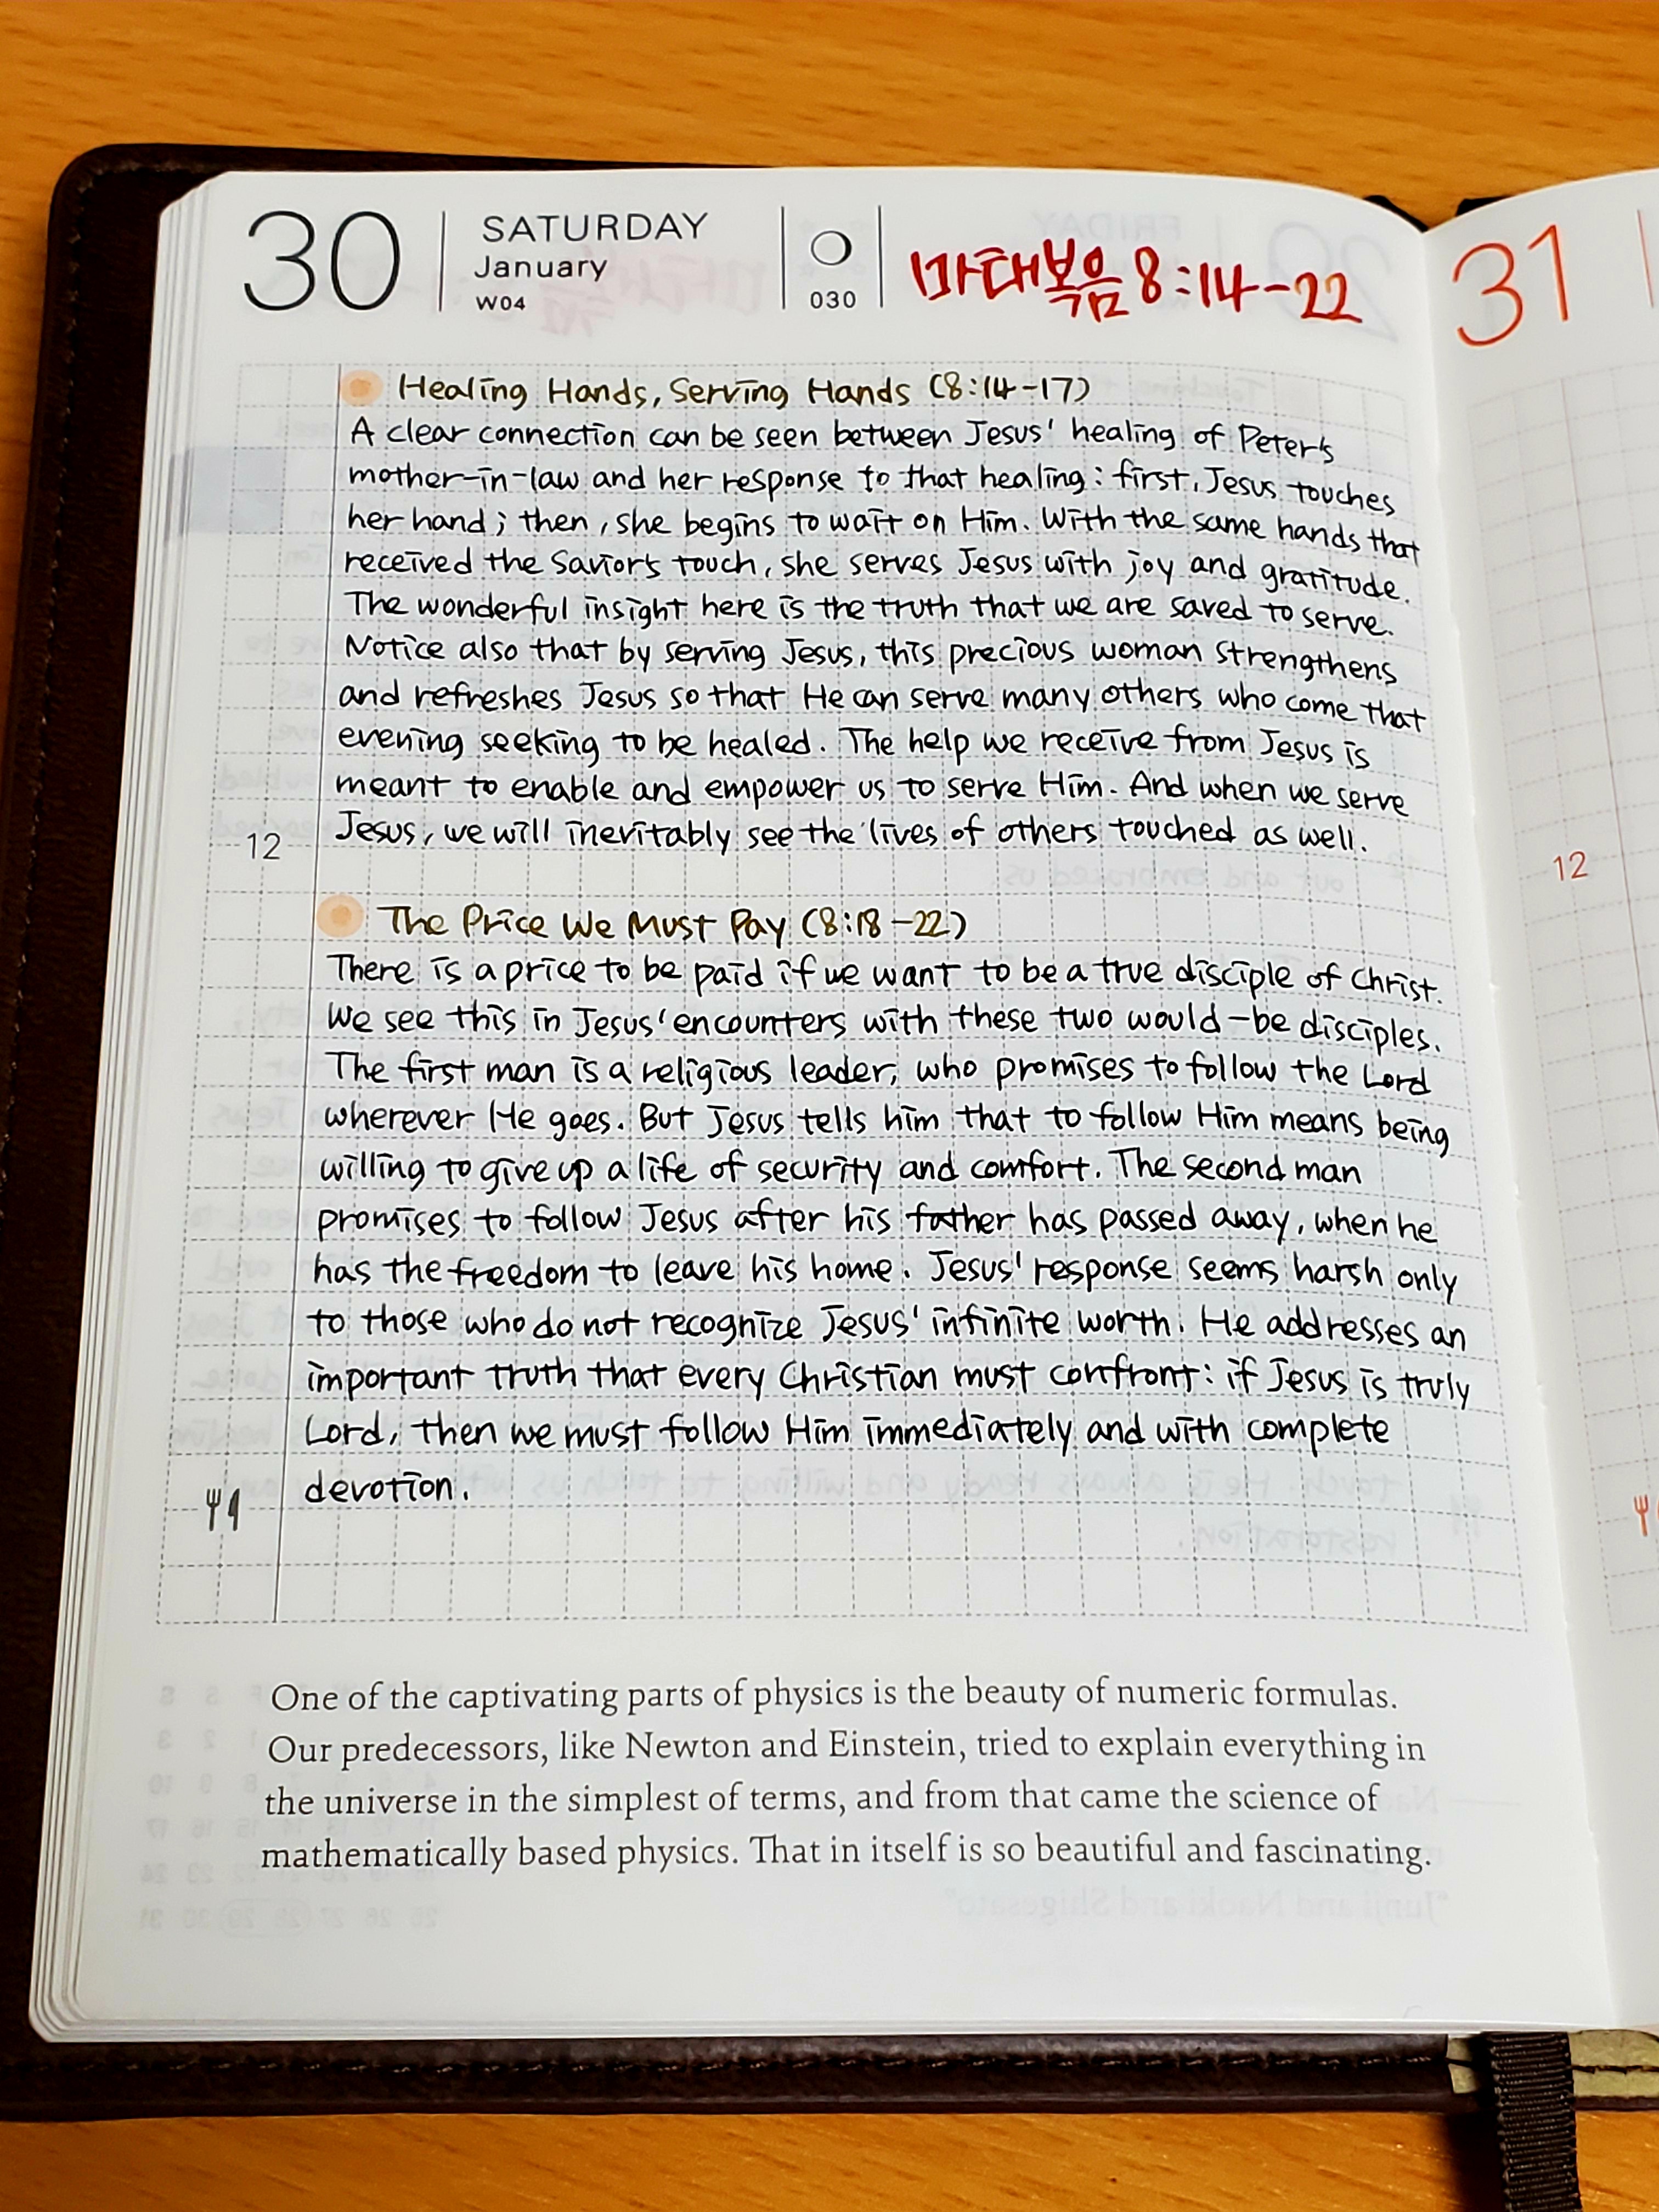 30
SATURDAY
January
W04
030
마태복음 8:14-22
31
Healing Hands, Serving Hands (8:14-17)
A clear connection can be seen between Jesus' healing of Peter's
mother-in-law and her response to that healing: first, Jesus touches
her hand; then, she begins to wait on Him. With the same hands that
received the Savior's touch, she serves Jesus with joy and gratitude.
The wonderful insight here is the truth that we are saved to serve.
Notice also that by serving Jesus, this precious woman strengthens
and refreshes Jesus so that He can serve many others who come that
evening seeking to be healed. The help we receive from Jesus is
meant to enable and empower us to serve Him. And when we serve
Jesus, we will inevitably see the lives of others touched as well.
12
12
The Price We Must Pay (8:18-22)
There is a price to be paid if we want to be a true disciple of Christ.
We see this in Jesus' encounters with these two would-be disciples.
The first man is a religious leader, who promises to follow the Lord
wherever He goes. But Jesus tells him that to follow Him means being
willing to give up a life of security and comfort. The second man
promises to follow Jesus after his father has passed away, when he
has the freedom to leave his home. Jesus' response seems harsh only
to those who do not recognize Jesus' infinite worth. He addresses an
important truth that every Christian must confront: if Jesus is truly
Lord, then we must follow Him immediately and with complete
devotion.
One of the captivating parts of physics is the beauty of numeric formulas.
Our predecessors, like Newton and Einstein, tried to explain everything in
the universe in the simplest of terms, and from that came the science of
mathematically based physics. That in itself is so beautiful and fascinating.